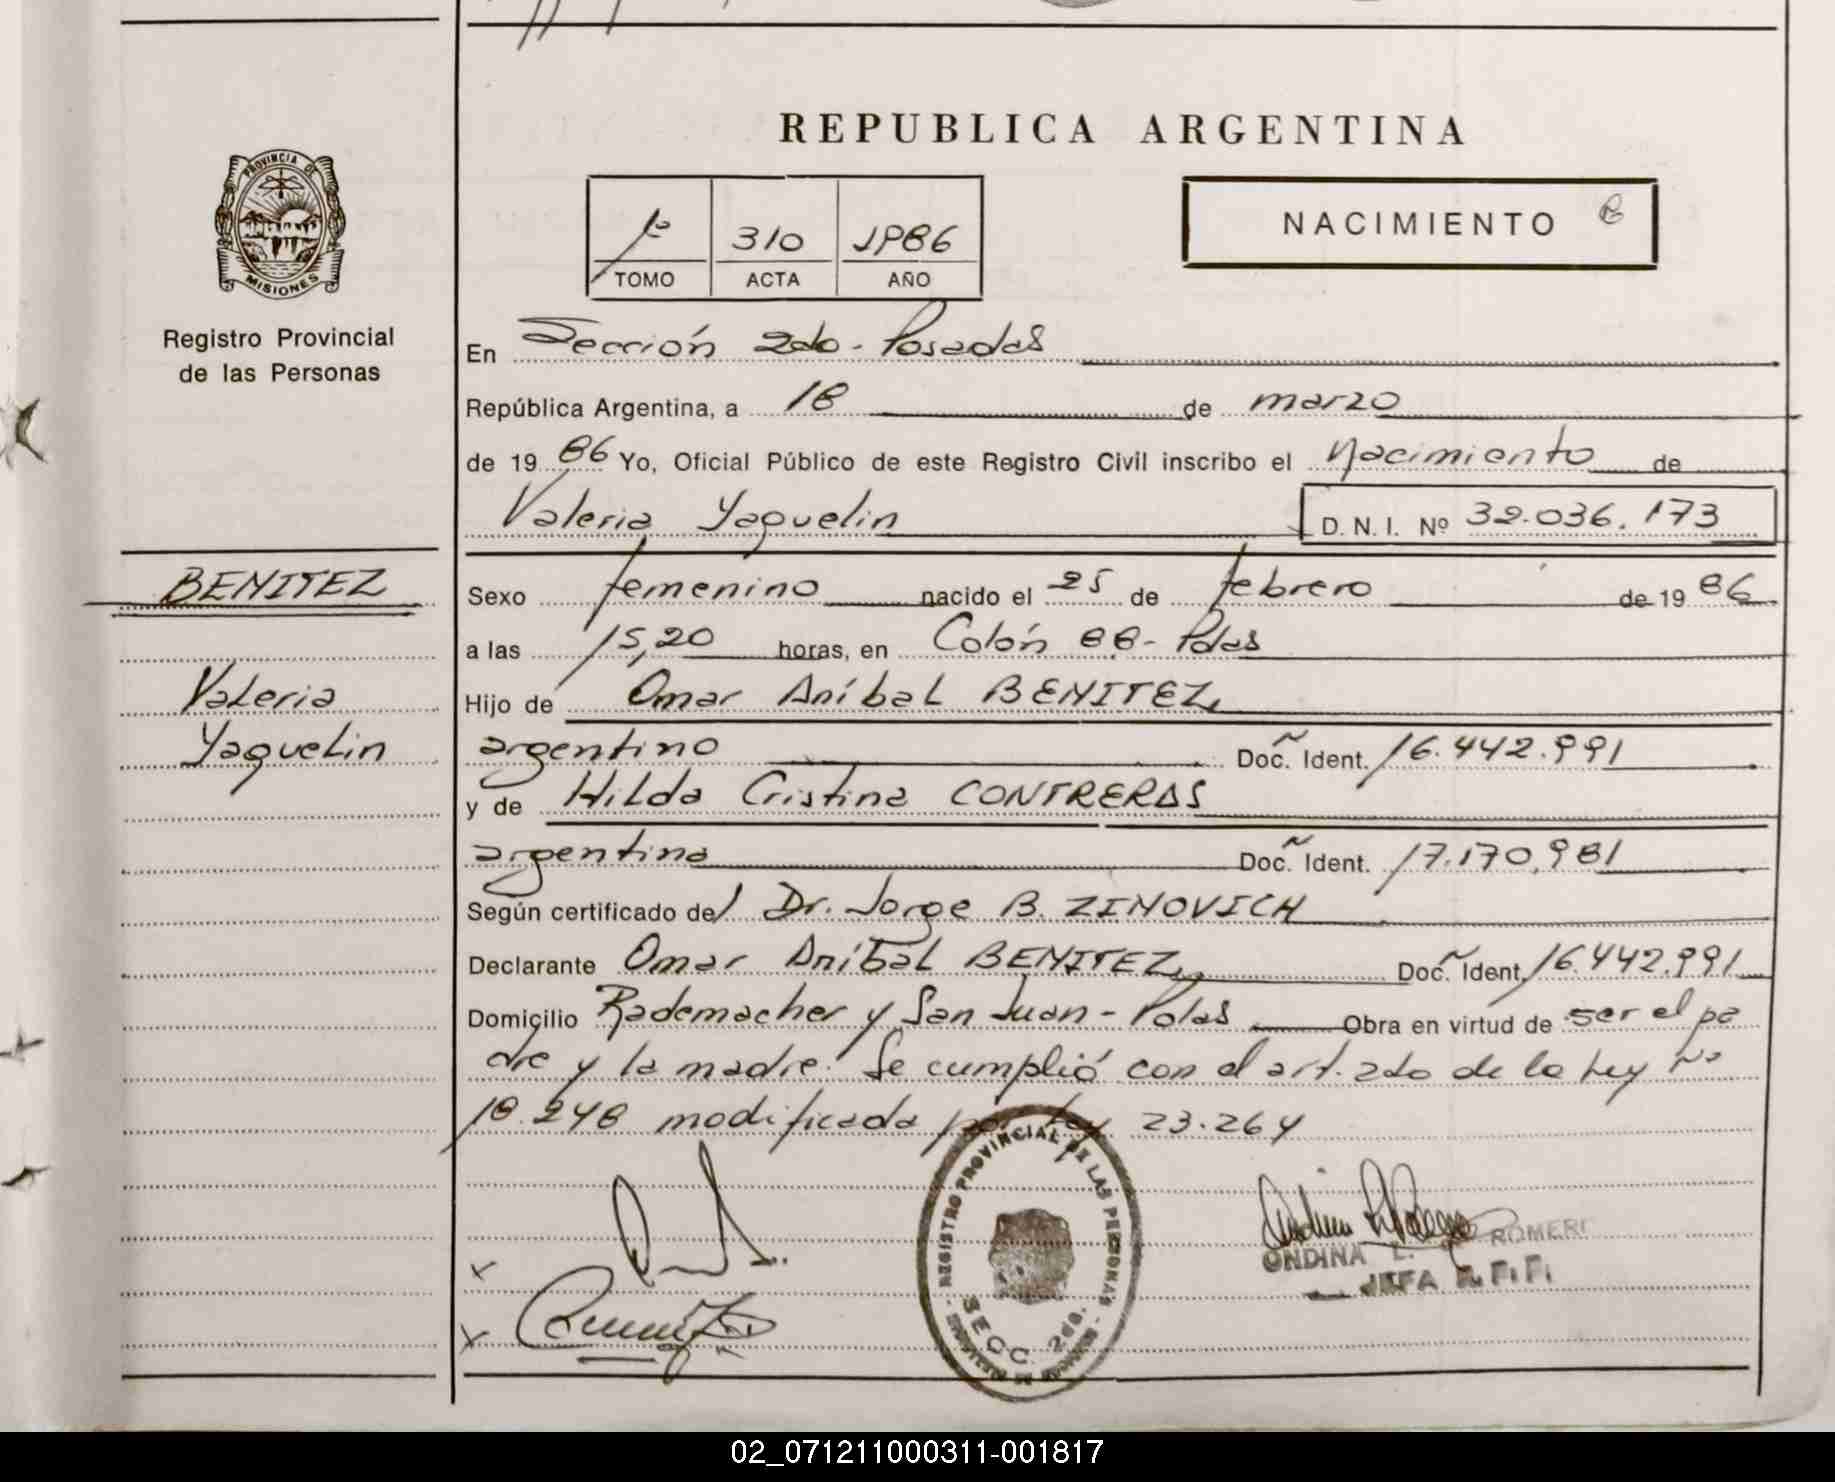 REPUBLICA ARGENTINA
PROVINCIA DE
MISIONES
Registro Provincial
de las Personas
1º 310 1986
TOMO ACTA AÑO
NACIMIENTO
En Sección 2do - Posadas
República Argentina, a 18 de marzo
de 19 86 Yo, Oficial Público de este Registro Civil inscribo el Nacimiento de
Valeria Yaquelin D. N. I. Nº 32.036.173
BENITEZ
Valeria
Yaquelin
Sexo femenino nacido el 25 de febrero de 19 86
a las 15,20 horas, en Colón 88 - Pdas
Hijo de Omar Aníbal BENITEZ
argentino Doc. Ident. 16.442.991
y de Hilda Cristina CONTRERAS
argentina Doc. Ident. 17.170.981
Según certificado del Dr. Jorge B. ZINOVICH
Declarante Omar Aníbal BENITEZ Doc. Ident. 16.442.991
Domicilio Rademacher y San Juan - Pdas Obra en virtud de ser el pa
dre y la madre. Se cumplió con el art. 2do de la Ley Nº
18.248 modificada por Ley 23.264
REGISTRO PROVINCIAL DE LAS PERSONAS
SECC. 2da.
ONDINA L. ROMERO
JEFA R.F.F.
02_071211000311-001817